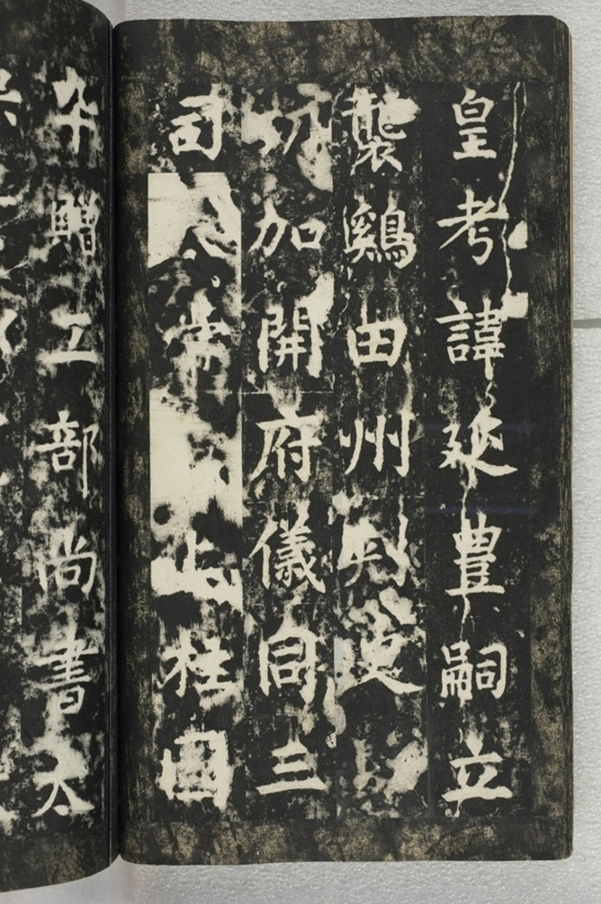 皇考諱延豊嗣立
襲鷄田州刺史
功加開府儀同三
司常上柱國
卒贈工部尚書太